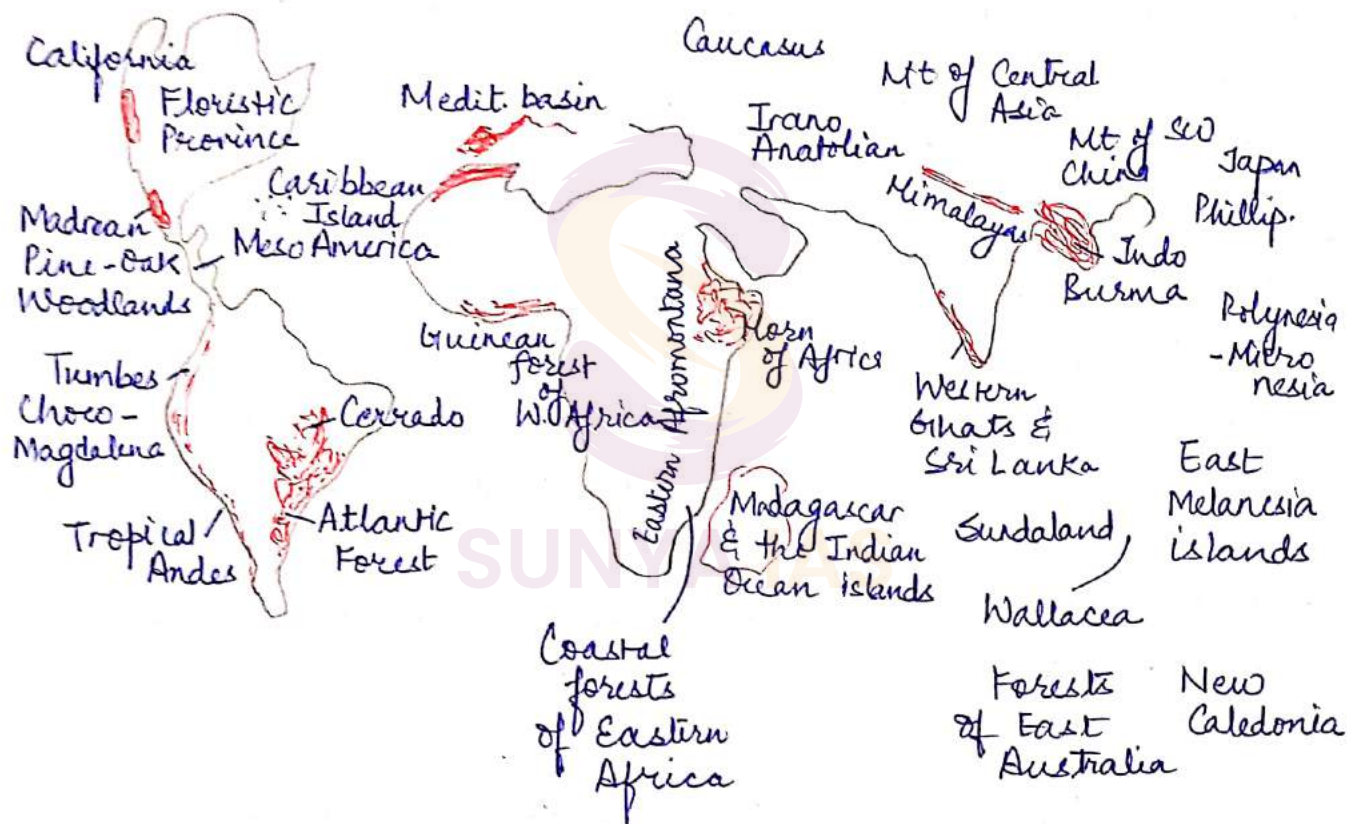 California
Floristic
Province
Madrean
Pine-Oak
Woodlands
Caribbean
Island
Meso America
Tumbes
Choco-
Magdalena
Tropical
Andes
Cerrado
Atlantic
Forest
Medit. basin
Guinean
forest
of
W. Africa
Eastern Afromontana
Horn
of Africa
Madagascar
& the Indian
Ocean islands
Coastal
forests
of Eastern
Africa
Caucasus
Irano
Anatolian
Mt of Central
Asia
Himalayas
Mt of SW
China
Japan
Phillip.
Indo
Burma
Polynesia
-Micro
nesia
Western
Ghats &
Sri Lanka
Sundaland
Wallacea
East
Melanesia
islands
Forests
of East
Australia
New
Caledonia
SUNYA IAS